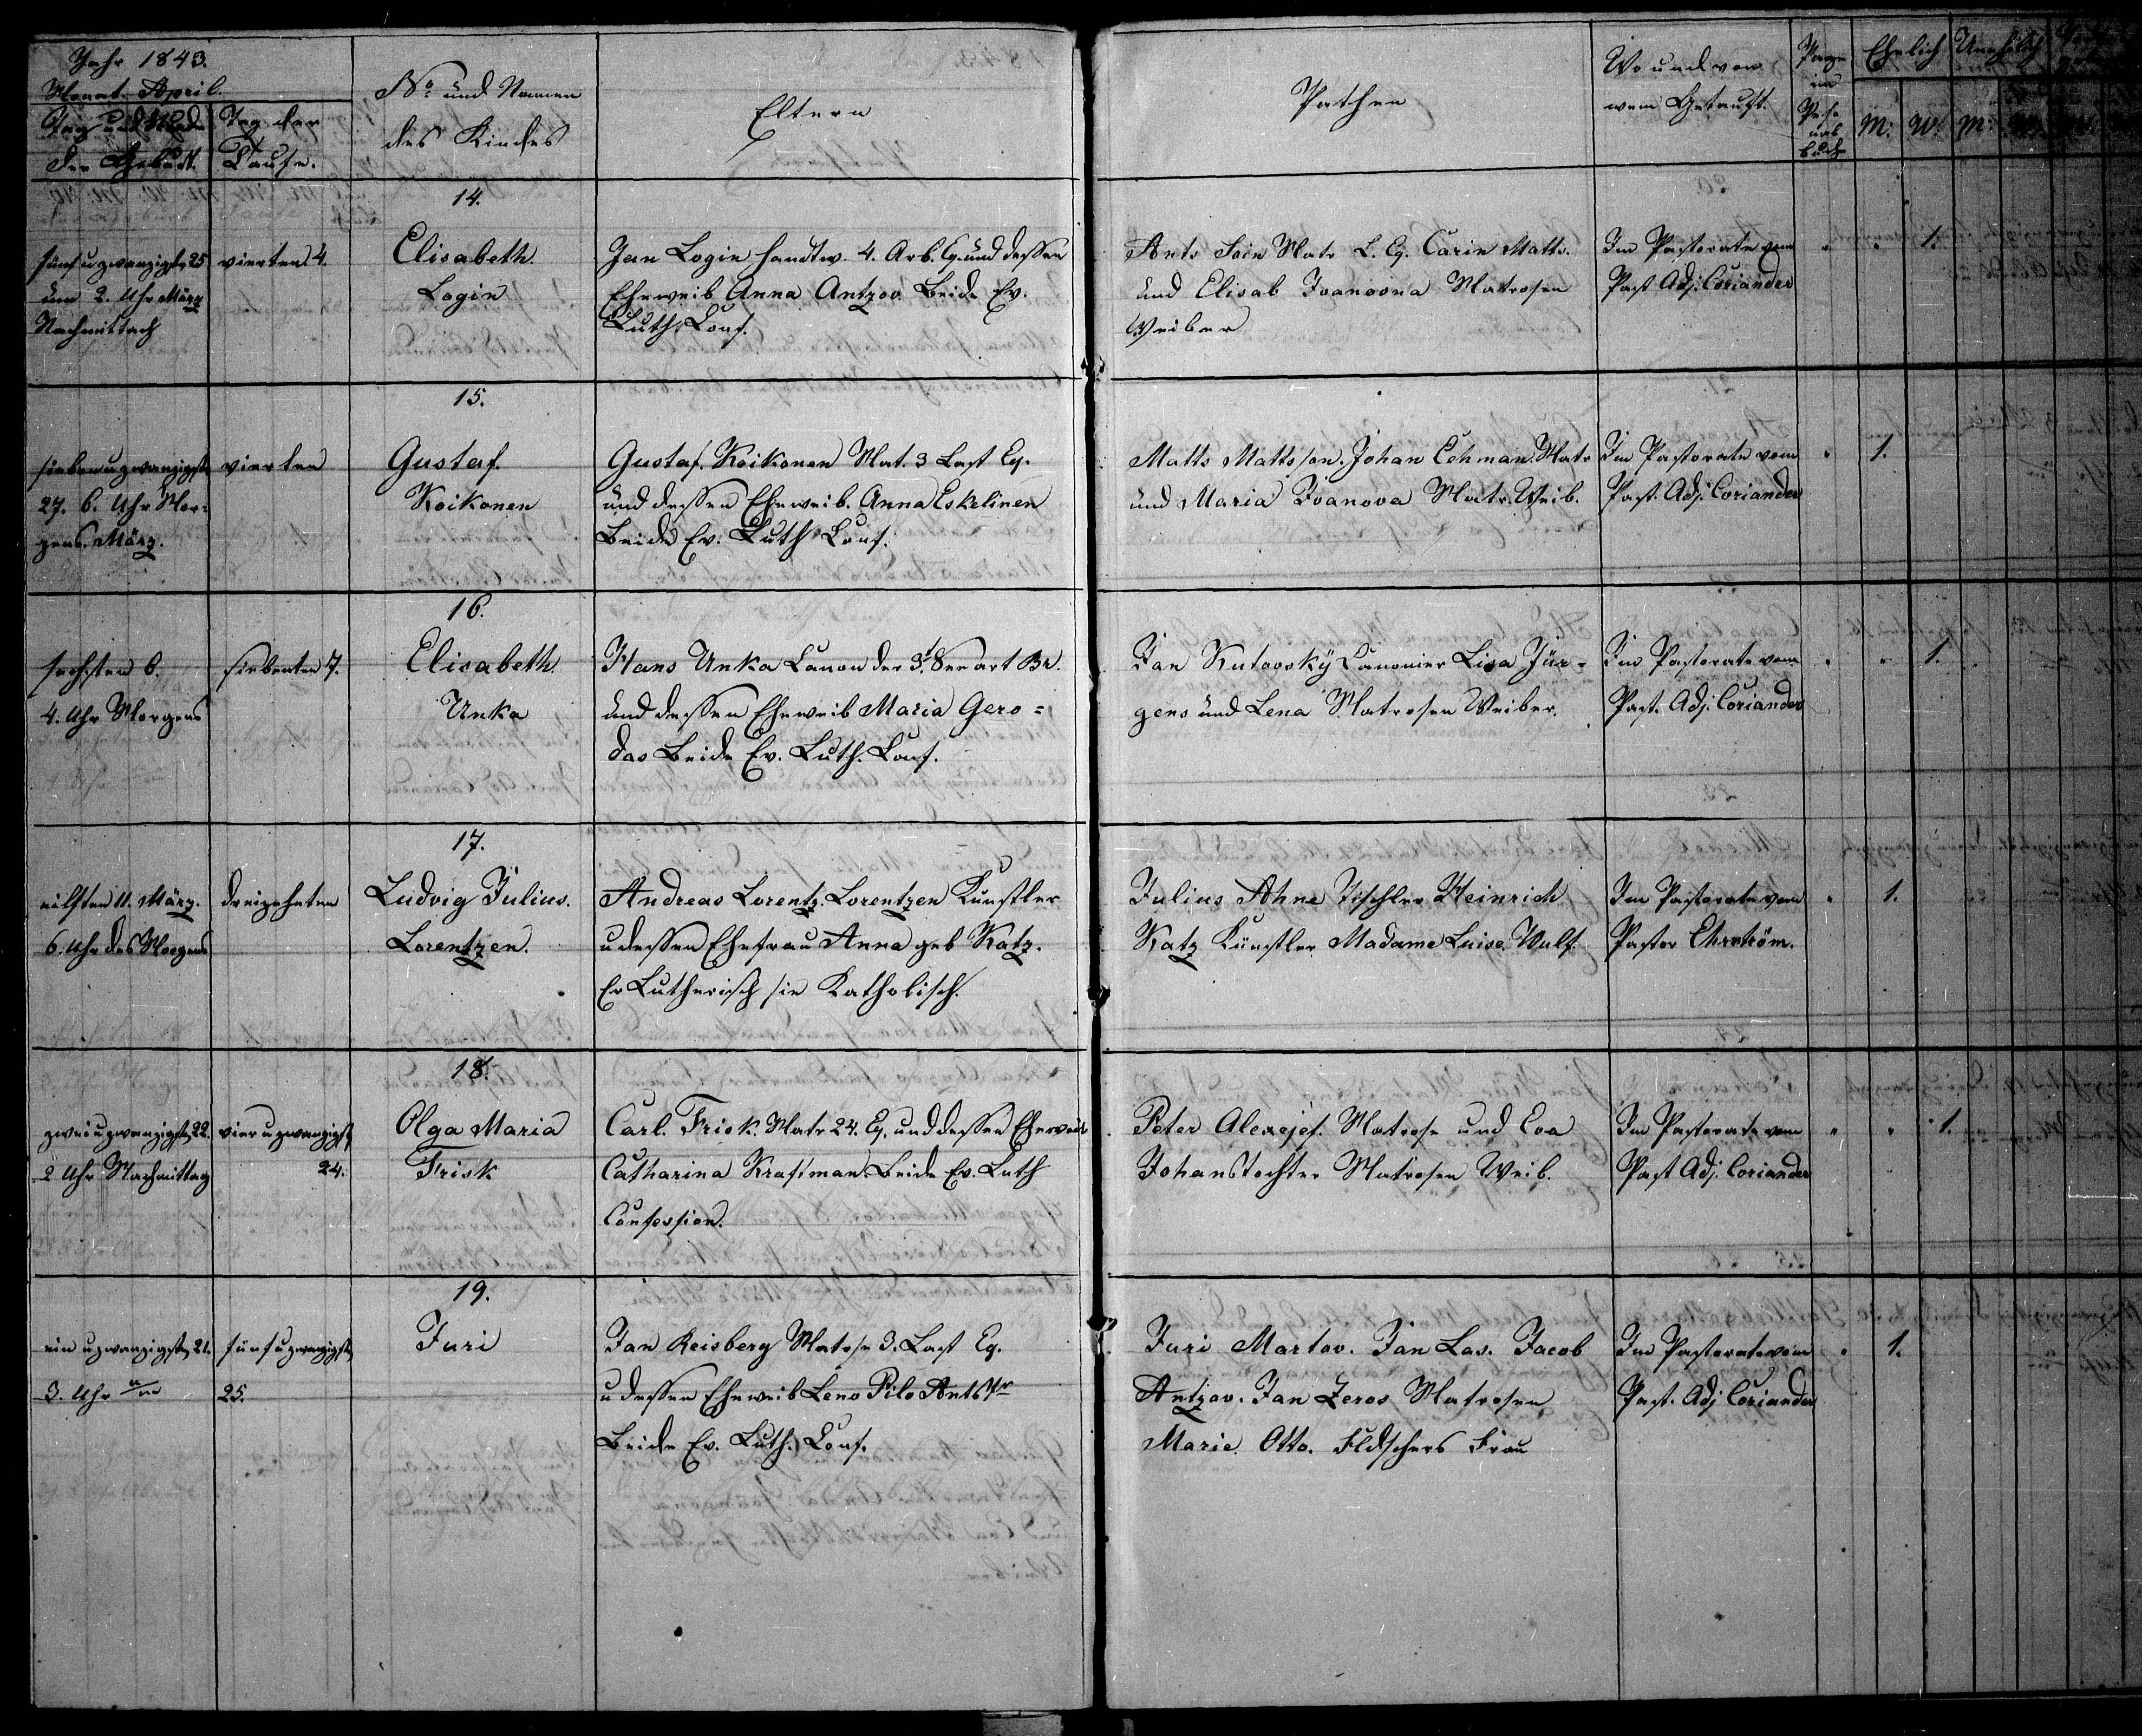 Jahr 1843.
Monat April.
Tag und Stunde der Geburt.
Tag der Taufe.
No: und Namen des Kindes
Eltern
Pathen
Wo und von wem Getauft.
Page im Perso nal buch
Ehelich
Unehelich
M: W: M: W:
14.
fünf u zwanzigst 25
um 2. Uhr März
Nachmittach
vierten 4.
Elisabeth.
Login
Jan Login Handtw. 4. Arb. Eq. und dessen
Eheweib Anna Antzov Beide Ev.
Luth. Conf.
Ants Soin Matr L. Eq. Carin Matts.
und Elisab Ivanovna Matrosen
Weiber
Im Pastorate vom
Past Adj. Coriander
1.
15.
sieben u zwanzigst
27. 6. Uhr Mor-
gens. März.
vierten
Gustaf.
Koikonen
Gustaf. Koikonen Mat. 3 Last Eq.
und dessen Eheweib. Anna Eskelinen
Beide Ev. Luth. Conf.
Matts Mattsson. Johan Lehman. Matr
und Maria Ivanova Matr. Weib.
Im Pastorate vom
Past. Adj. Coriander
1.
16.
sechsten 6.
4. Uhr Morgens
siebenten 7.
Elisabeth
Unka
Hans Unka Canon der 3t. See art Br.
und dessen Eheweib Maria Gero=
das Beide Ev. Luth. Conf.
Jan Kutovsky Canonier Lisa Jür=
gens und Lena Matrosen Weiber.
Im Pastorate vom
Past. Adj. Coriander
1.
17.
eilften 11. März.
6 Uhr des Morgens
dreizehnten
Ludvig Julius.
Lorentzen.
Andreas Lorentz. Lorentzen Künstler
u dessen Ehefrau Anna geb Katz.
Er Lutherisch sie Katholisch.
Julius Ahne Tischler Heinrich
Katz Künstler Madame Luise. Wulf.
Im Pastorate vom
Pastor Ehrström.
1.
18.
zwei u zwanzigst 22.
2 Uhr Nachmittag
vier u zwanzigst
24.
Olga Maria
Frisk
Carl. Frisk. Matr 24. Eq. und dessen Eheweib
Catharina Krafsman Beide Ev. Luth
Confession.
Peter Alexejef. Matrose und Eva
Johanstochter Matrosen Weib.
Im Pastorate vom
Past Adj. Coriander
1.
19.
ein u zwanzigst 21.
3. Uhr
fünf u zwanzigst
25.
Juri
Jan Reisberg Matrose 3. Last Eq.
u dessen Eheweib Leno Pilo Ants tr
Beide Ev. Luth. Conf.
Juri Martov. Jan Las. Jacob
Antzov. Jan Zeros Matrosen
Marie. Otto. Fldschers Frau
Im Pastorate vom
Past. Adj Coriander
1.